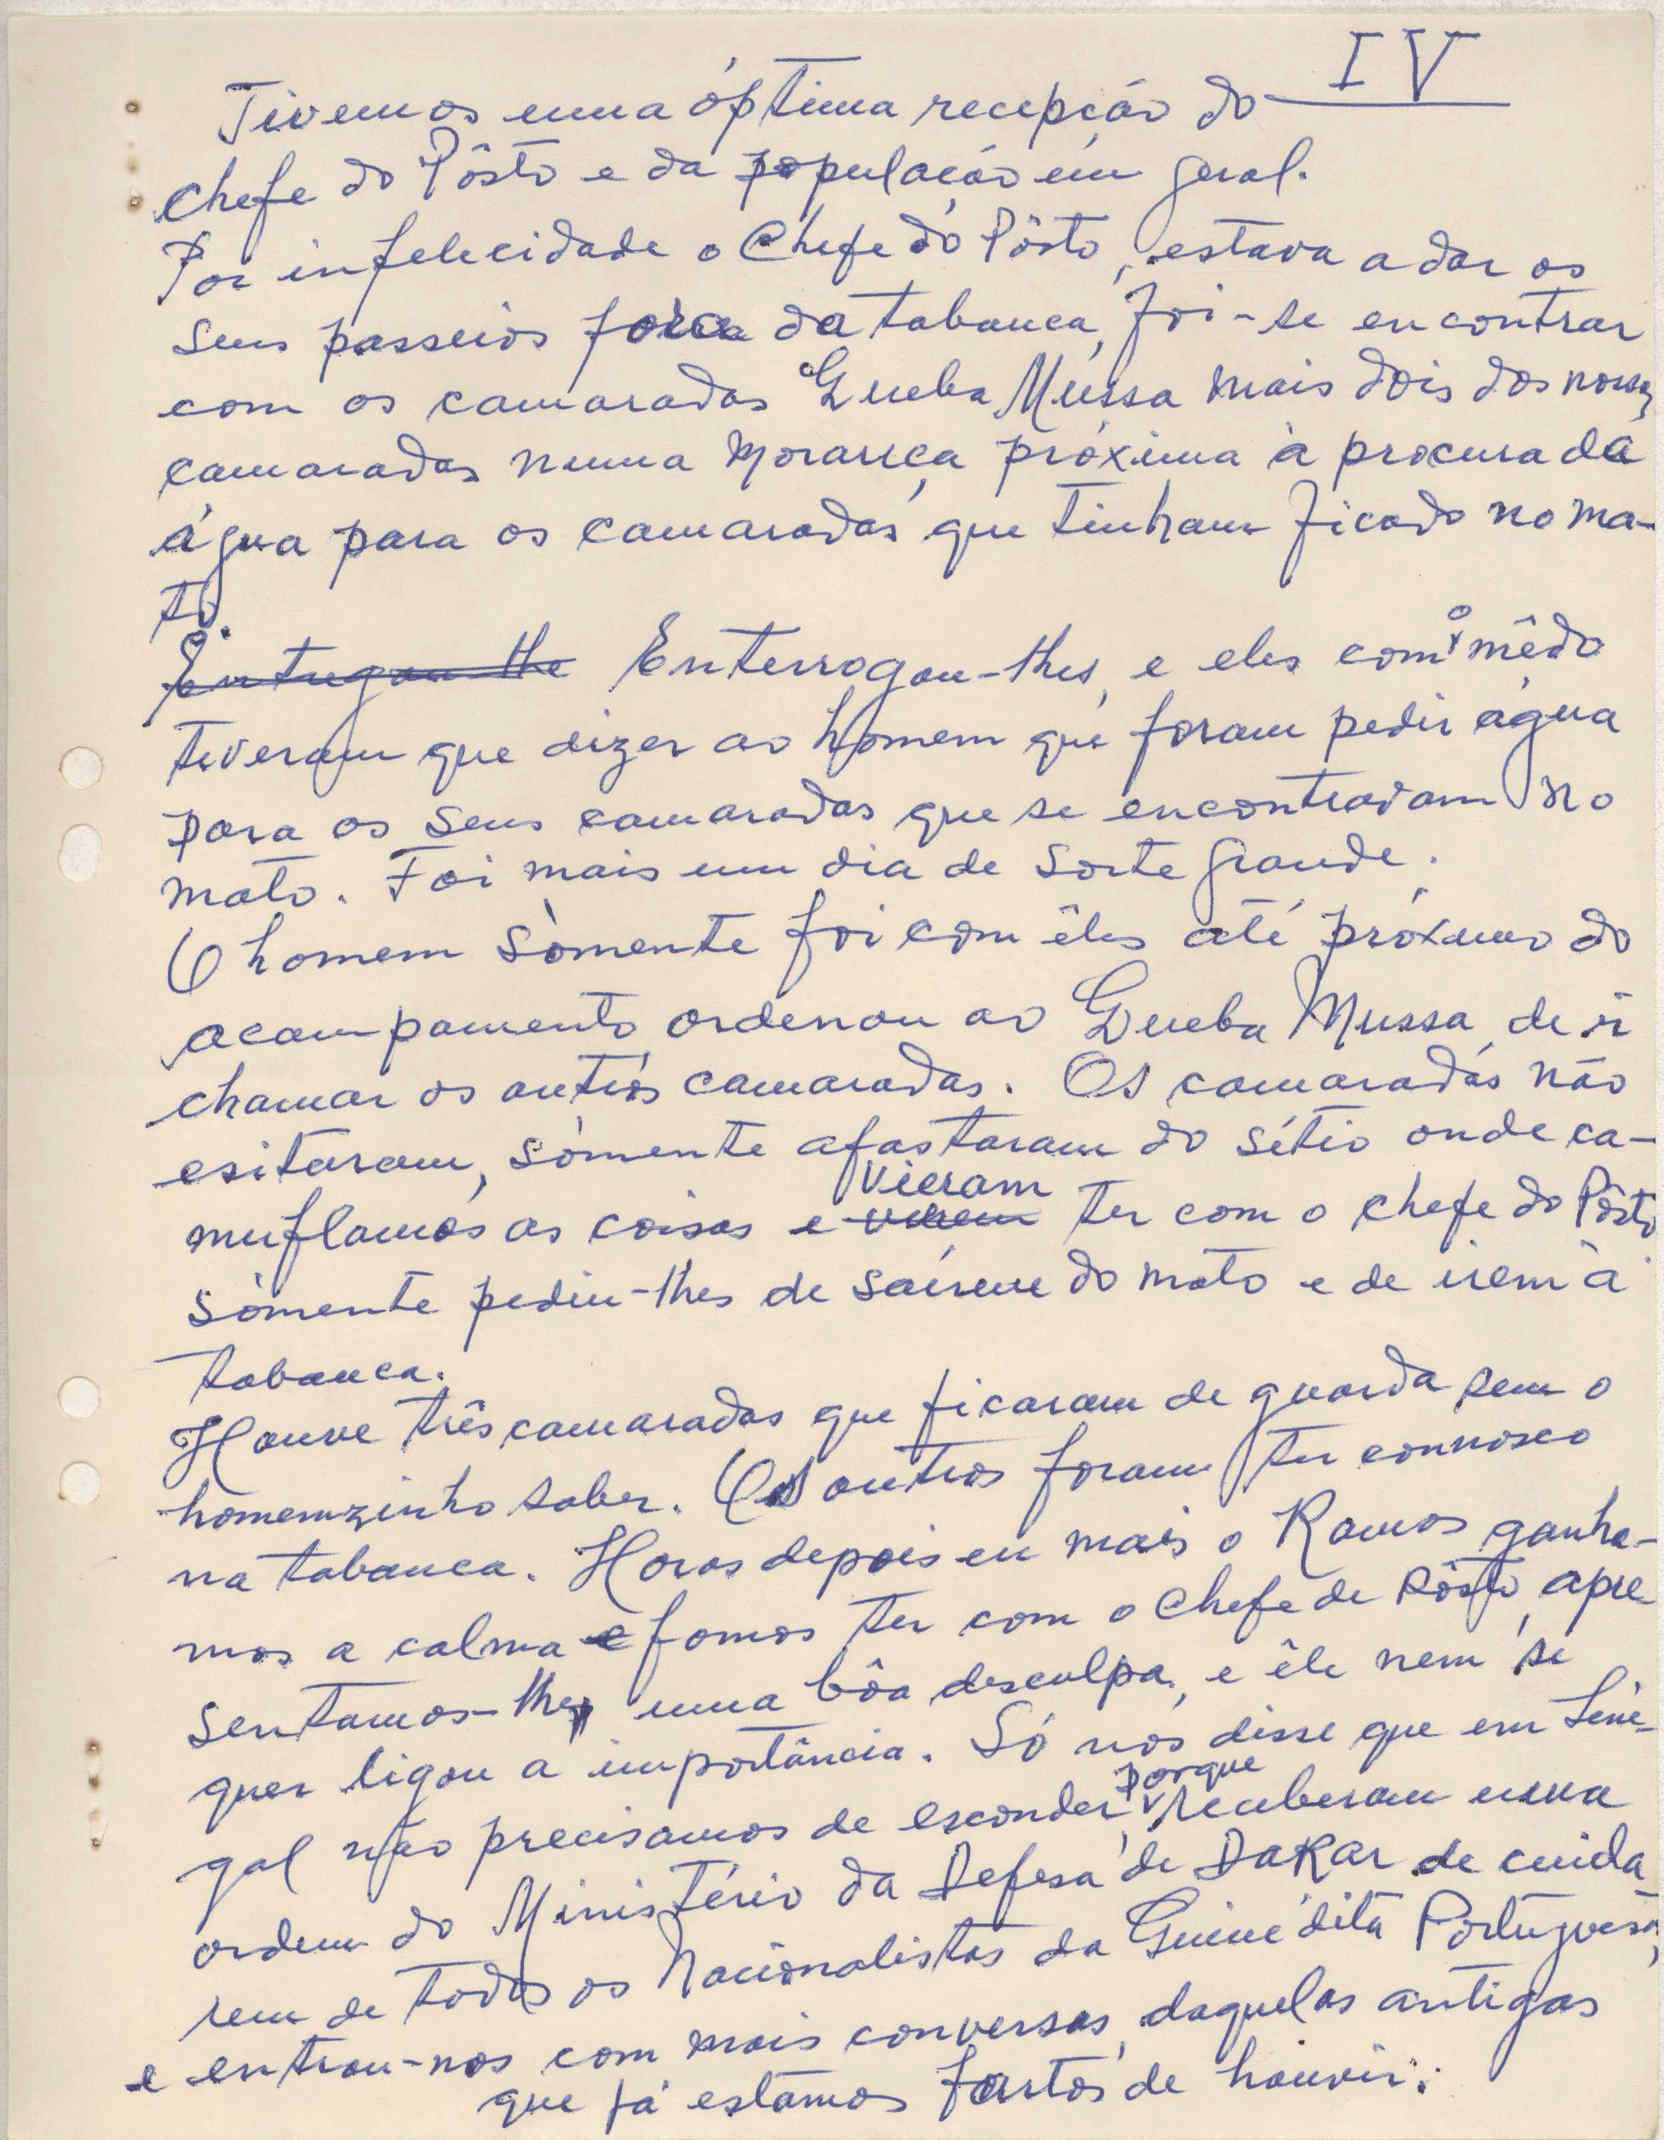 IV
Tivemos uma óptima recepção do
chefe do Pôsto e da população em geral.
Por infelecidade o Chefe do Pôsto, estava a dar os
seus passeios fora da tabanca, foi-se encontrar
com os camaradas Gueba Mussa mais dois dos nossos
camaradas numa morança próxima à procura da
água para os camaradas que tinham ficado no ma-
to.
Entregou-lhe Enterrogou-lhes, e eles com o mêdo
tiveram que dizer ao homem que foram pedir água
para os seus camaradas que se encontravam no
mato. Foi mais um dia de sorte grande.
O homem sòmente foi com êles até próximo do
acampamento ordenou ao Gueba Mussa, de ir
chamar os outros camaradas. Os camaradas não
esitaram, sòmente afastaram do sítio onde ca-
muflamos as coisas e virem vieram ter com o chefe do Pôsto
sòmente pediu-lhes de saírem do mato e de irem à
tabanca.
Houve três camaradas que ficaram de guarda sem o
homemzinho saber. Os outros foram ter connosco
na tabanca. Horas depois eu mais o Ramos ganha-
mos a calma e fomos ter com o chefe de Pôsto, apre-
sentamos-lhe uma bôa desculpa, e êle nem se
quer ligou a importância. Só nos disse que em Séne-
gal não precisamos de esconder, porque receberam uma
ordem do Ministério da Defesa de Dakar de cuida
rem de todos os Nacionalistas da Guiné dita Portuguesa,
e entrou-nos com mais conversas, daquelas antigas
que já estamos fartos de houvir.